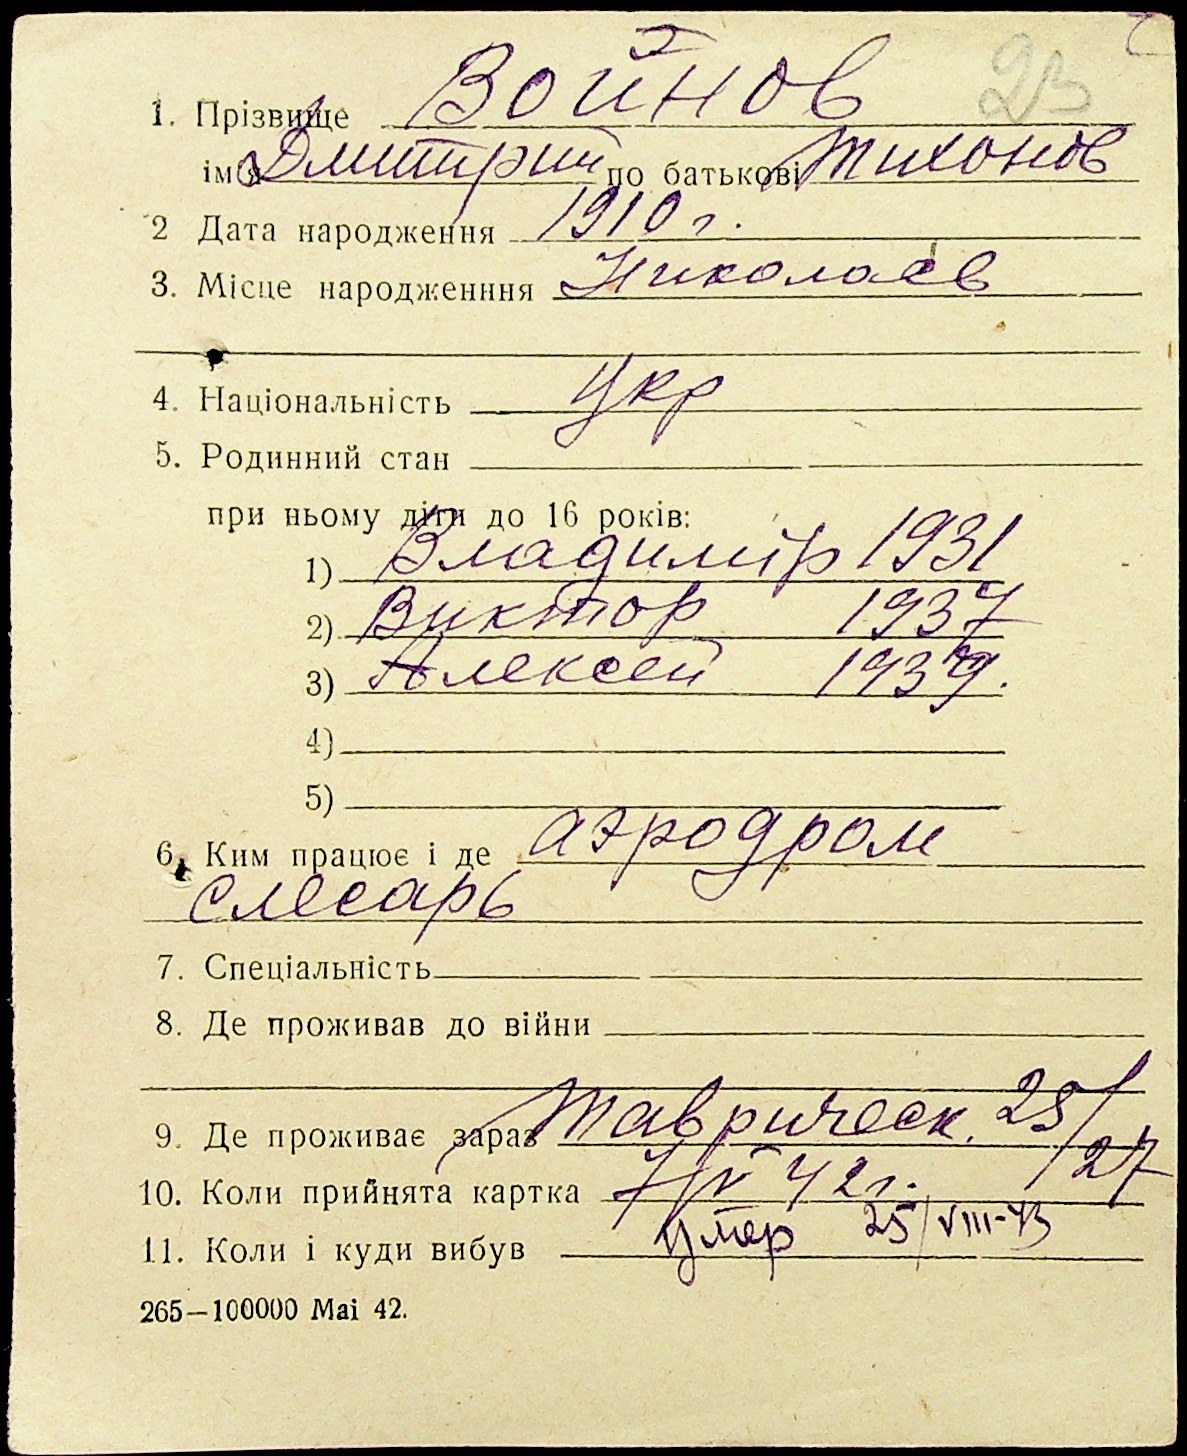 23
1. Прізвище Войнов
ім'я Дмитрий по батькові Тихонов
2 Дата народження 1910 г.
3. Місце народженння Николаев
4. Національність Укр
5. Родинний стан
при ньому діти до 16 років:
1) Владимир 1931
2) Виктор 1937
3) Алексей 1939.
4)
5)
6. Ким працює і де аэродром
слесарь
7. Спеціальність
8. Де проживав до війни
9. Де проживає зараз Таврическ. 25/27
10. Коли прийнята картка 42 г.
11. Коли і куди вибув Умер 25/VIII-43
265—100000 Mai 42.